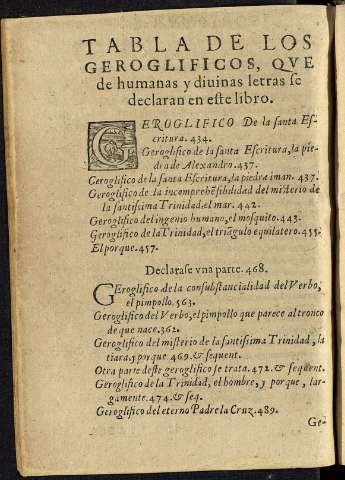 TABLA DE LOS
GEROGLIFICOS, QVE
de humanas y diuinas letras ſe
declaran en eſte libro.
GEROGLIFICO De la ſanta Eſ-
critura. 434.
Geroglifico de la ſanta Eſcritura, la pie
dra de Alexandro. 437.
Geroglifico de la ſanta Eſcritura, la piedra iman. 437.
Geroglifico de la incomprehẽſibilidad del miſterio de
la ſantiſsima Trinidad, el mar. 442.
Geroglifico del ingenio humano, el moſquito. 443.
Geroglifico de la Trinidad, el triãgulo equilatero. 455.
El porque. 457.
Declaraſe vna parte. 468.
Geroglifico de la conſubſtancialidad del Verbo,
el pimpollo. 563.
Geroglifico del Verbo, el pimpollo que parece al tronco
de que nace. 362.
Geroglifico del miſterio de la ſantiſsima Trinidad, la
tiara, y porque 469. & ſequent.
Otra parte deſte geroglifico ſe trata. 472. & ſequent.
Geroglifico de la Trinidad, el hombre, y porque, lar-
gamente. 474. & ſeq.
Geroglifico del eterno Padre la Cruz. 489.
Ge-